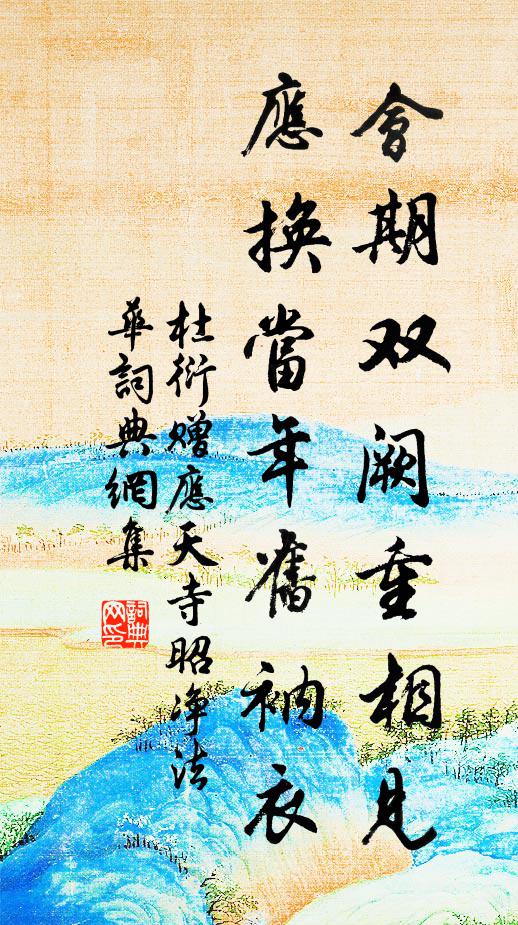 會期双阙重相見
應換當年舊衲衣
杜衍赠應天寺昭净法
華詞典網集
詞典
网印